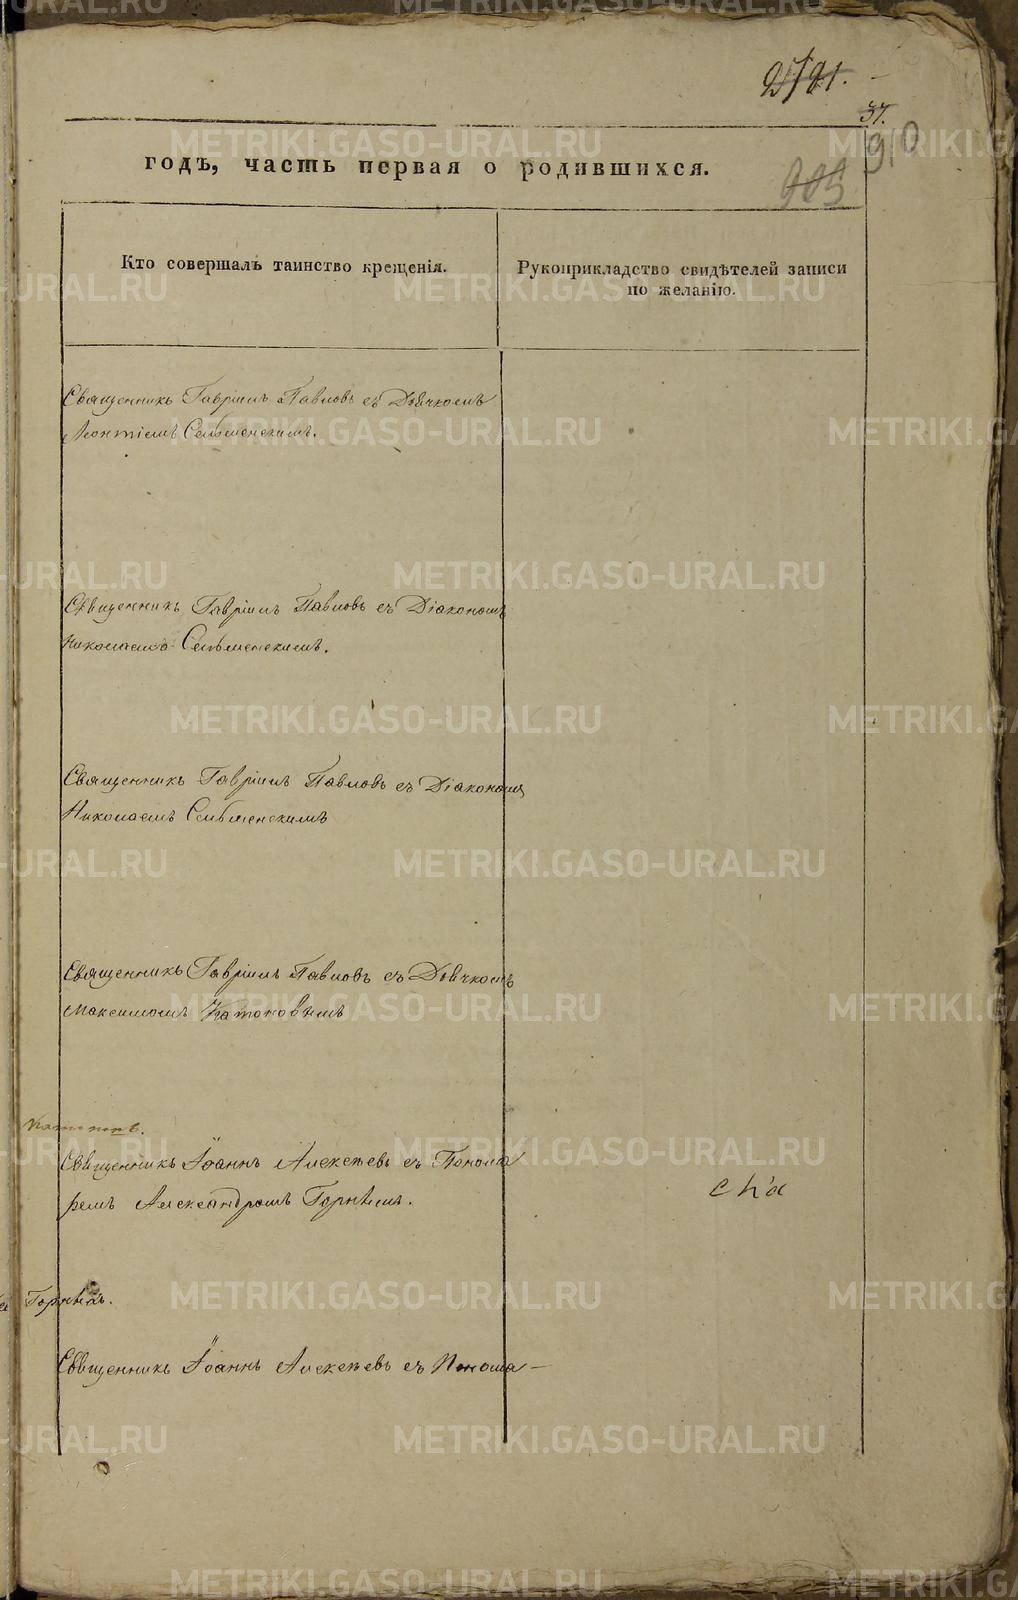 37.
910
годъ, часть первая о родившихся.
Кто совершалъ таинство крещенія.
Рукоприкладство свидѣтелей записи
по желанію.
Священникъ Гавріилъ Павловъ съ Дьячкомъ
Леонтіемъ
Священникъ Гавріилъ Павловъ съ Діакономъ
Священникъ Гавріилъ Павловъ съ Діакономъ
Николаемъ
Священникъ Гавріилъ Павловъ съ Дьячкомъ
Максимомъ
Священникъ Іоаннъ Алексѣевъ съ Понома
ремъ Александромъ
Священникъ Іоаннъ Алексѣевъ съ Понома-
METRIKI.GASO-URAL.RU